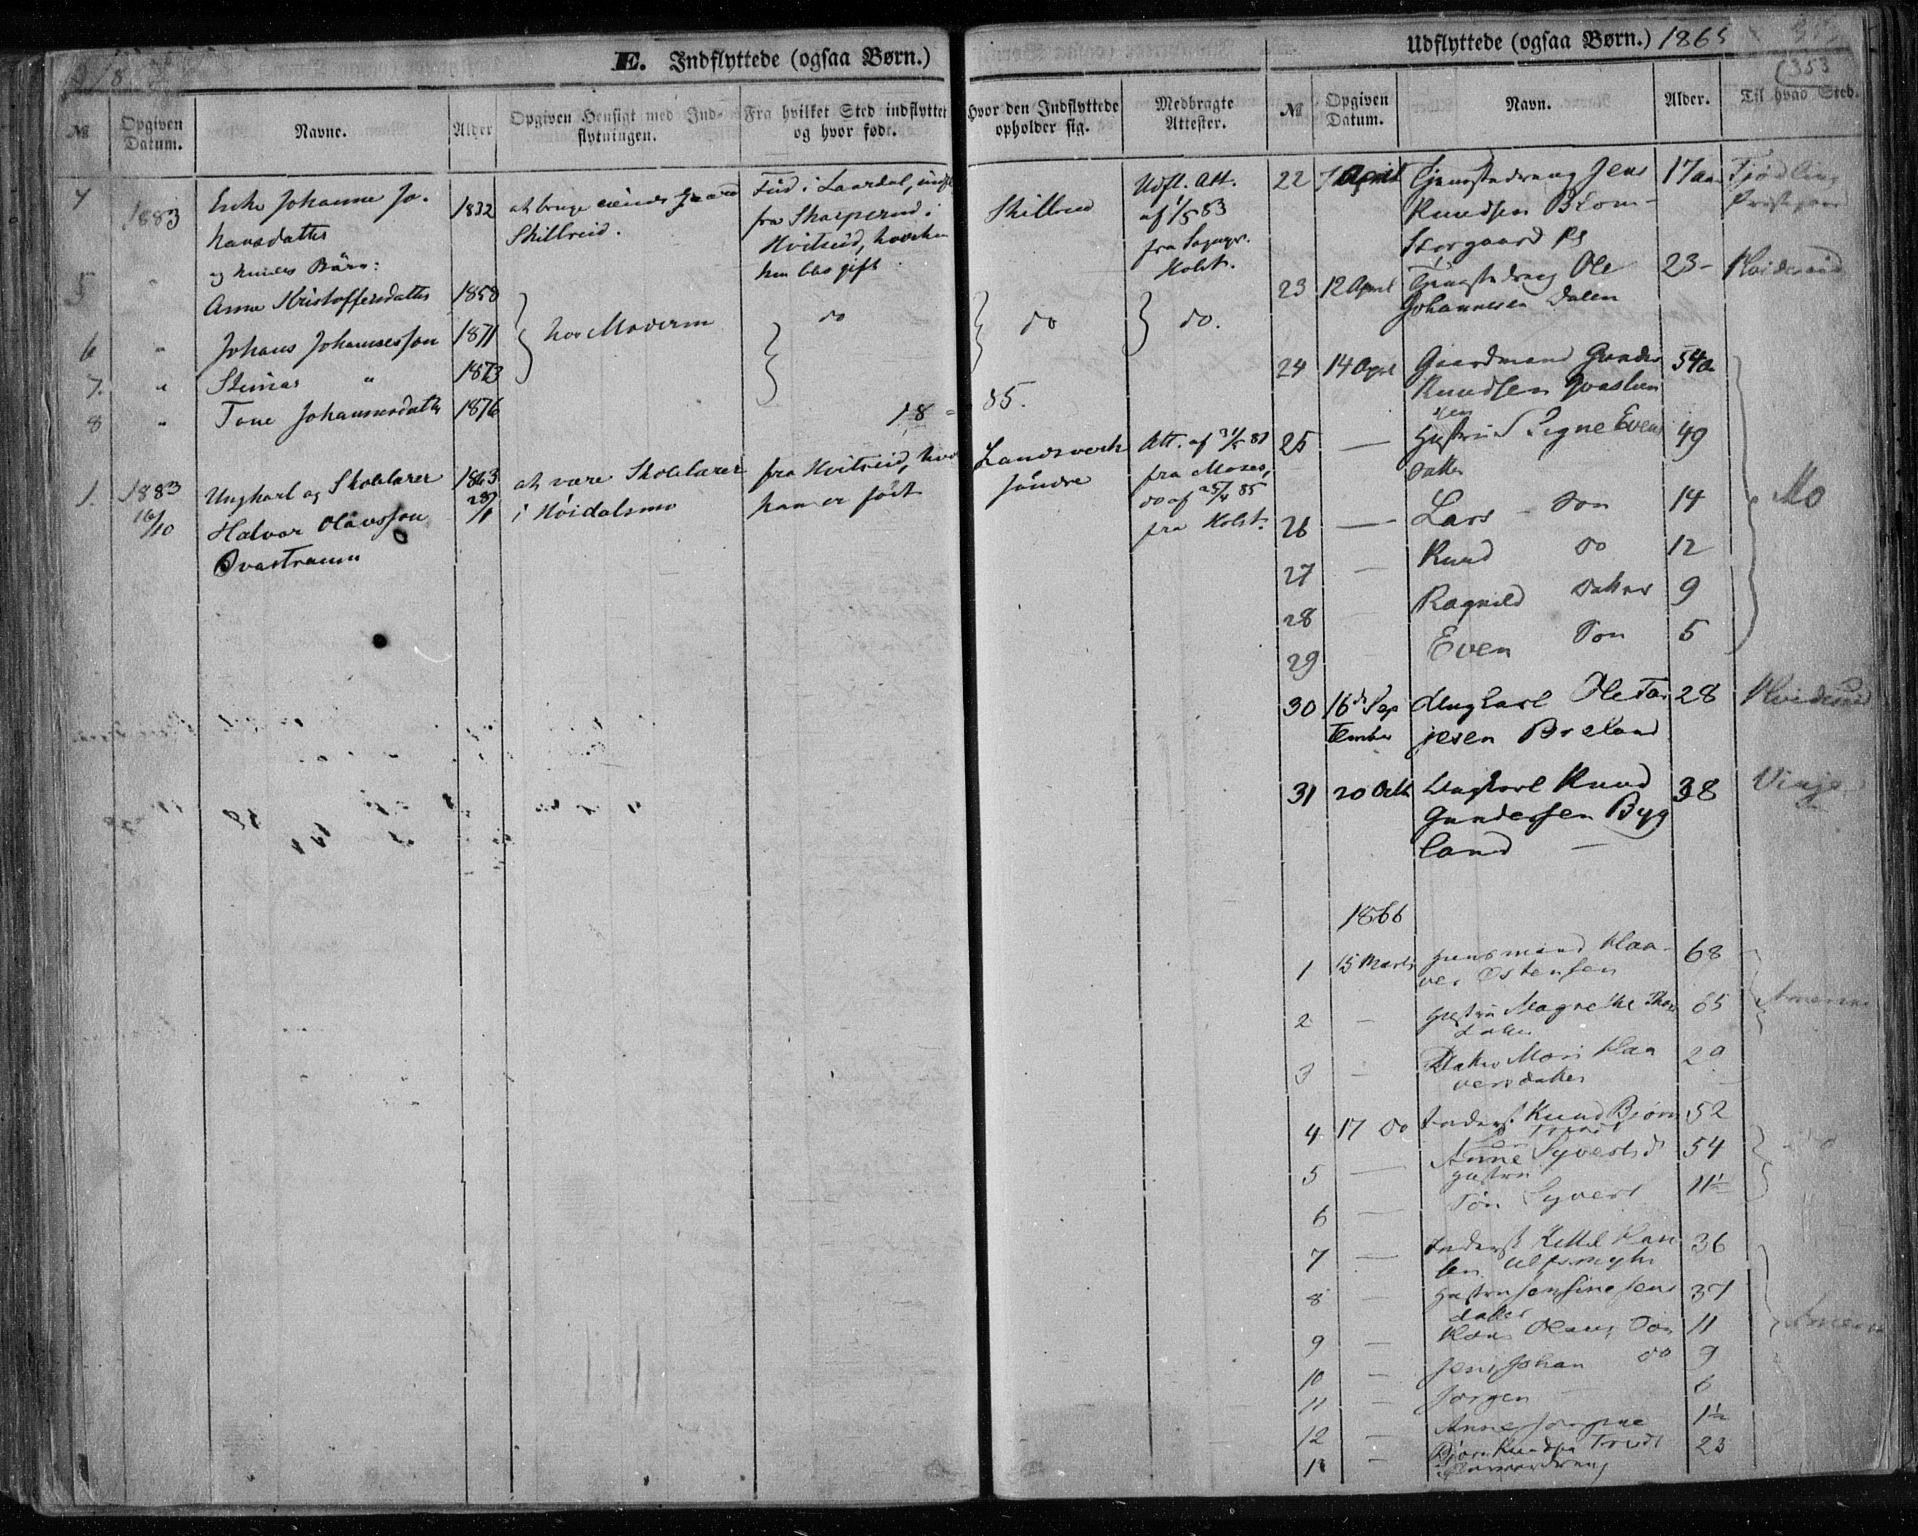 E. Indflyttede (ogsaa Børn.)
№
Opgiven Datum.
Navne.
Alder
Opgiven Hensigt med Indflytningen.
Fra hvilket Sted indflyttet og hvor født.
Hvor den Indflyttede opholder sig.
Medbragte Attester.
4
1883
Enke Johanne Jo-
hansdatter
og hendes Børn:
1832
at bruge eiende Gaard
Skillreid.
i Laardal, indfl
fra Skarperud i
Hvitseid, hvorhen
hun blev gift
Skillreid
Udfl. Att.
af 1/5 83
fra Sognepr.
Holst.
5 " Anne Kristoffersdatter 1858
hos Moderen
do
do
do.
6 " Johans Johannesson 1871
7. " Steinar " 1873
8 " Tone Johannesdatter 1876
18 - 85.
1. 1883
16/10
Ungkarl og Skolelærer
Halvor Olavsson
Ovastraum
1863
28/1
at være Skolelærer
i Høidalsmo
fra Hvitseid, hvor
han er født
Landsverk
søndre
Att. af 31/5 83
fra Moses,
do af 25/4 85
fra Holst.
Udflyttede (ogsaa Børn.) 1865
353
№
Opgiven Datum.
Navn.
Alder.
Til hvad Sted.
22 7 April Tjenestedreng Jens 17 aar
Knudsen Blom-
Storgaard
23 12 April Tjenestedreng Ole 23- Hvideseid
Johannesen Dalen
24 14 April Gaardmand Gunder 54a
Knudsen
25 — Hustru Signe Evens 49
datter
26 — Lars - Søn 14 Mo
27 — Knud do 12
28 Ragnild datter 9
29 Even Søn 5
30 16de Sep Ungkarl Ole Tar 28 Hvideseid
tember jesen Breland
31 20 Octb Ungkarl Knud 38 Vinje
Gundersen Byg
land —
1866
1 15 Marts Huusmand Haa- 68
ver Østensen
2 — Hustru Magnethe Thor 65
datter
3 — Datter Mari Haa
versdatter
4 17 do Inderst Knud Bjørn 52
5 — Anne Syverts d 54
Hustru
6 — Søn Syvert 11½
7 — Inderst Kettil Han 36
sen
8 — Hustru Jensine Jens 37
datter
9 — Hans Olaus Søn 11
10 — Jens Johan do 9
11 — Jørgen 6
12 — Anne Jorgine 1½
Bjørn Knudsen 23